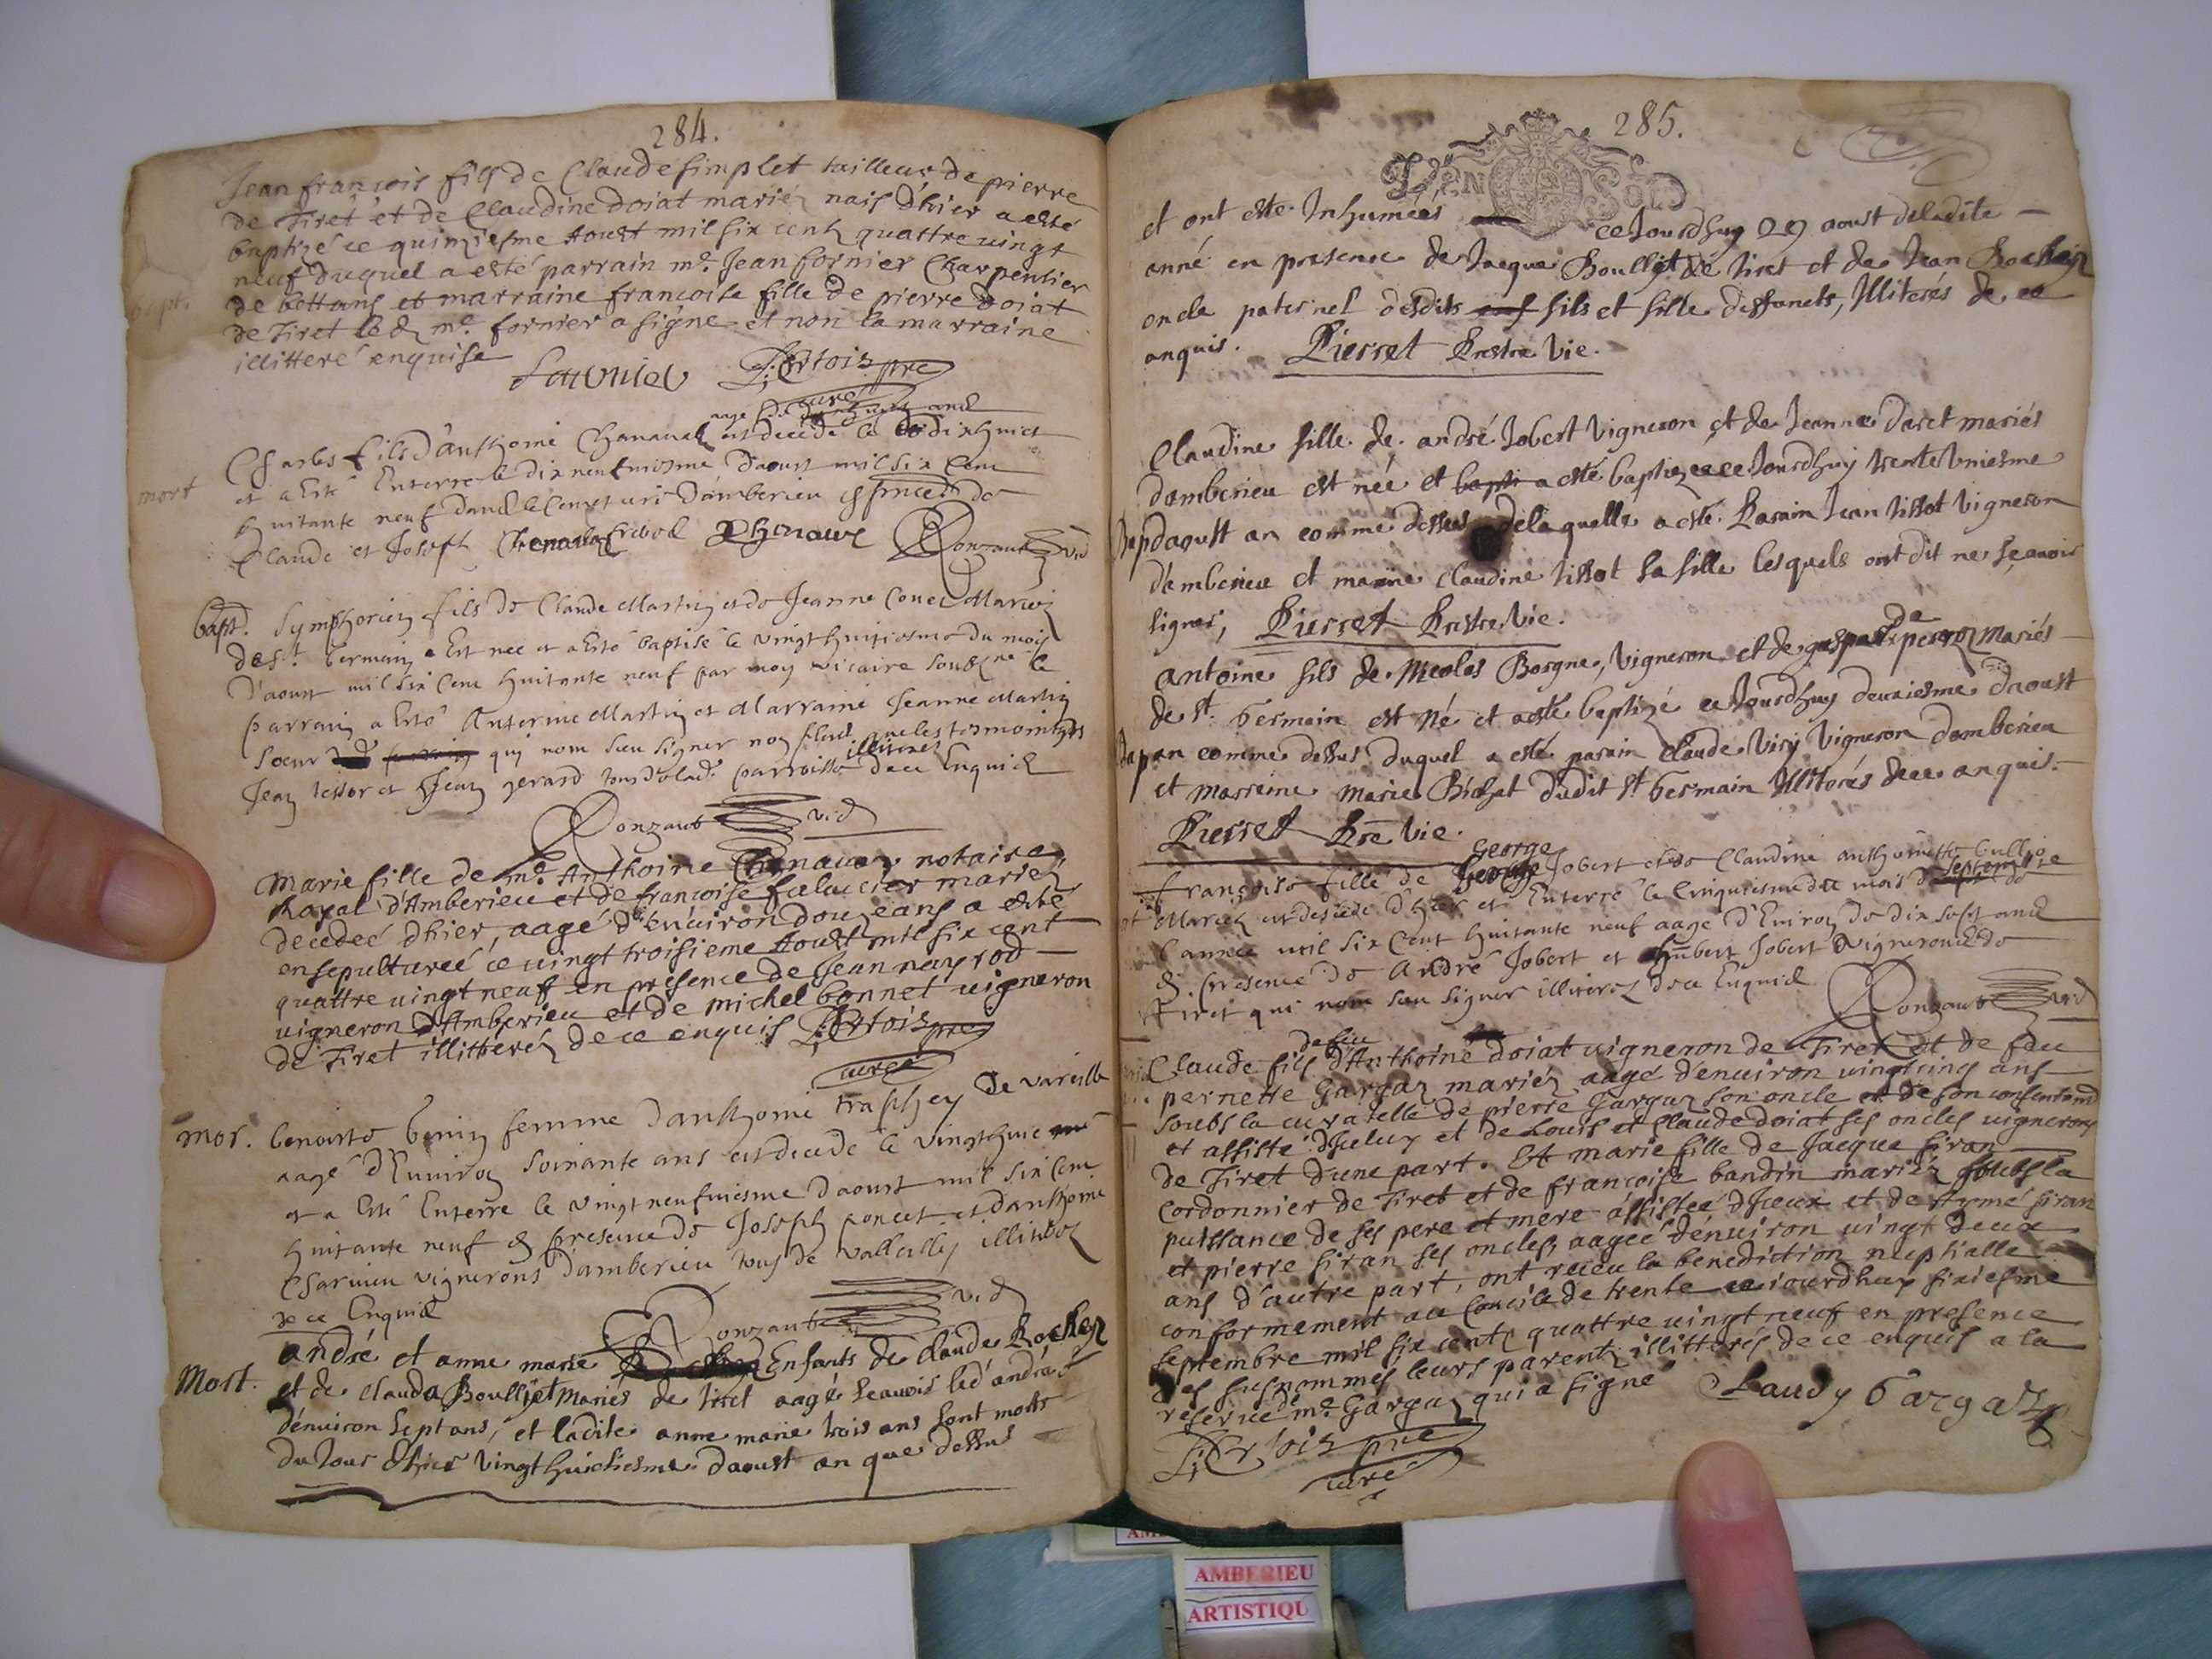 284.
Jean françois fils de Claude simplet tailleur de pierre
de Tiret et de Claudine doiat mariéz nais d'hier a esté
baptizé ce quinziesme Aoust mil six centz quattre vingt
neuf duquel a esté parrain me. Jean fornier Charpentier
bapt.
de bettans et marraine francoise fille de pierre doiat
de Tiret led. me. fornier a signé et non la marraine
illitteré enquise
P: Ertoiz pre
curé
Charles fils d'Anthoine est decede le dixhuict
mort
et a Esté Enterre le dix neufuiesme d'aoust mil six Cent
huitante neuf dans le d'amberieu de
Claude et Joseph
bapt. Symphorien fils de Claude Martin et de Jeanne Mariez
de St. Germain Est nee et a Esté baptisé le vingt huitiesme du mois
d'aoust mil six Cent huitante neuf par moy vicaire le
parrain a Esté Martin et Marraine Jeanne Martin
soeur qui nont sceu signer non plus que les tesmoints
Jean tissot et Jean gerard parroisse illiterez de ce Enquis
Marie fille de me. Anthoine notaire
Royal d'Amberieu et de francoise mariéz
decedeé d'hier, aagé d'enuiron douze ans a esté
ensepultureé ce vingt troisieme Aoust mil six cent
quattre vingt neuf en presence de Jean neyrod
vigneron d'Amberieu et de michel bonnet vigneron
de Tiret illitteréz de ce enquis P: Ertoiz pre
curé
mor. benoiste femme d'anthoine de vareille
aagé d'Enuiron soixante ans est decede le vingt huic
et a Esté Enterre le vingt neufuiesme d'aoust mil six Cent
huitante neuf presence de Joseph poncet et d'anthoine
vignerons d'amberieu tous de illiterez
de ce Enquis
andré et anne marie Enfants de claude
Mort.
et de clauda Boulliet Mariés de tiret aagé sçauoir led. andré
dénuiron sept ans, et ladite anne marie trois ans sont morts
du Jour d'hier vingt huictiesme daoust an que dessus
285.
et ont esté Inhumées ce Jourdhuy 29 aoust deladite
anné en presence de Jacque Boulliet de tiret et de Jean
oncle paternel desdits fils et fille deffuncts, Illiterés de ce
anquis. Pierret Prestre Vic.
Claudine fille de andré Jobert Vigneron et de Jeanne daret mariés
damberieu est née et bapti a esté baptizee ce Jourdhuy trente Vniesme
Bap daoust an comme dessus de laquelle a esté Parain Jean tissot Vigneron
d'amberieu et maraine claudine tissot sa fille lesquels ont dit ne sçauoir
signer, Pierret Prestre Vic.
antoine fils de Nicolas Borgne, Vigneron et de gasparde mariés
de St. Germain est Né et a esté baptizé ce Jourdhuy deuxiesme daoust
Bap an comme dessus duquel a esté parain claude Viry Vigneron damberieu
et marraine marie Bichat dudit St. Germain Illiterés de ce anquis.
Pierret Pre Vic.
George
francoise fille de George Jobert et de Claudine anthoinette
et Mariez est decedé d'hier et Enterré le Cinquiesme du mois de septembre
l'annee mil six Cent huitante neuf aagé d'Enuiron de dix sept ans
presence de André Jobert et hubert Jobert vignerons de
Tiret qui nont sceu signer illiterez de ce Enquis
de feu
Claude fils d'Anthoine doiat vigneron de Tiret et de feu
pernette Gargaz mariéz aagé d'enuiron vingt cinq ans
soubs la curatelle de pierre Gargaz son oncle et de son consentemt
et assisté d'Iceluy et de Louis et Claude doiat ses oncles vignerons
de Tiret d'une part. Et marie fille de Jacque siran
cordonnier de Tiret et de francoise bandin mariéz soubs la
puissance de ses pere et mere assisteé d'Iceux et de Aymé siran
et pierre siran ses oncles, aageé d'énuiron vingt deux
ans d'autre part, ont receu la benediction nuptialle
conformement au Concile de trente ce iourdhuy sixiesme
septembre mil six centz quattre vingt neuf en presence
des susnommés leurs parentz illitterés de ce enquis a la
reserue de me. Gargaz qui a signé Claudy Gargaz
P: Ertoiz pre
curé
AMBERIEU
ARTISTIQU